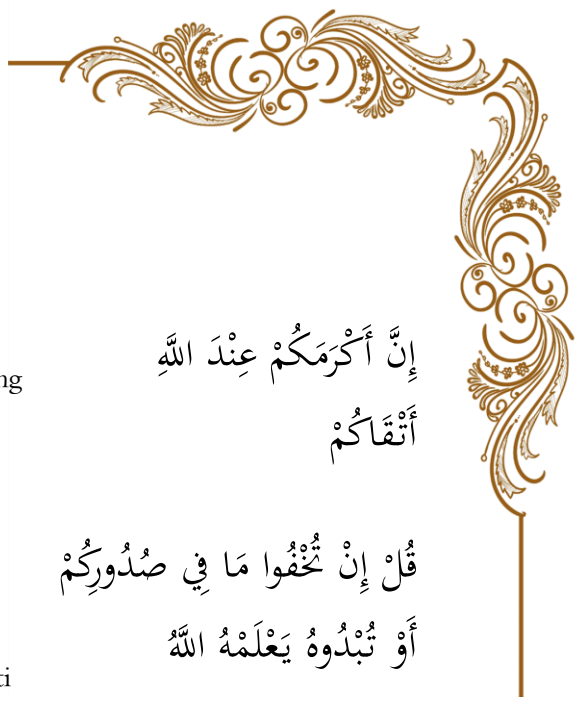 إِنَّ أَكْرَمَكُمْ عِنْدَ اللَّهِ
ng
أَتْقَاكُمْ
قُلْ إِنْ تُخْفُوا مَا فِي صُدُورِكُمْ
أَوْ تُبْدُوهُ يَعْلَمْهُ اللَّهُ
ti